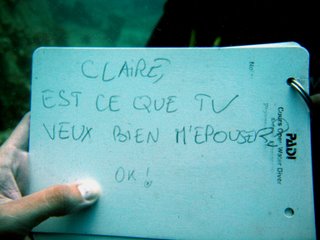 CLAIRE,
EST CE QUE TU
VEUX BIEN M'EPOUSER
OK!
PADI